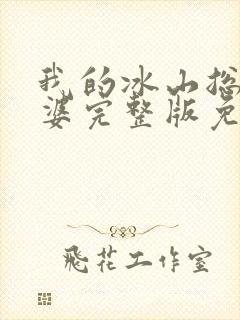 我的冰山总
婆完整版免
飛花工作室